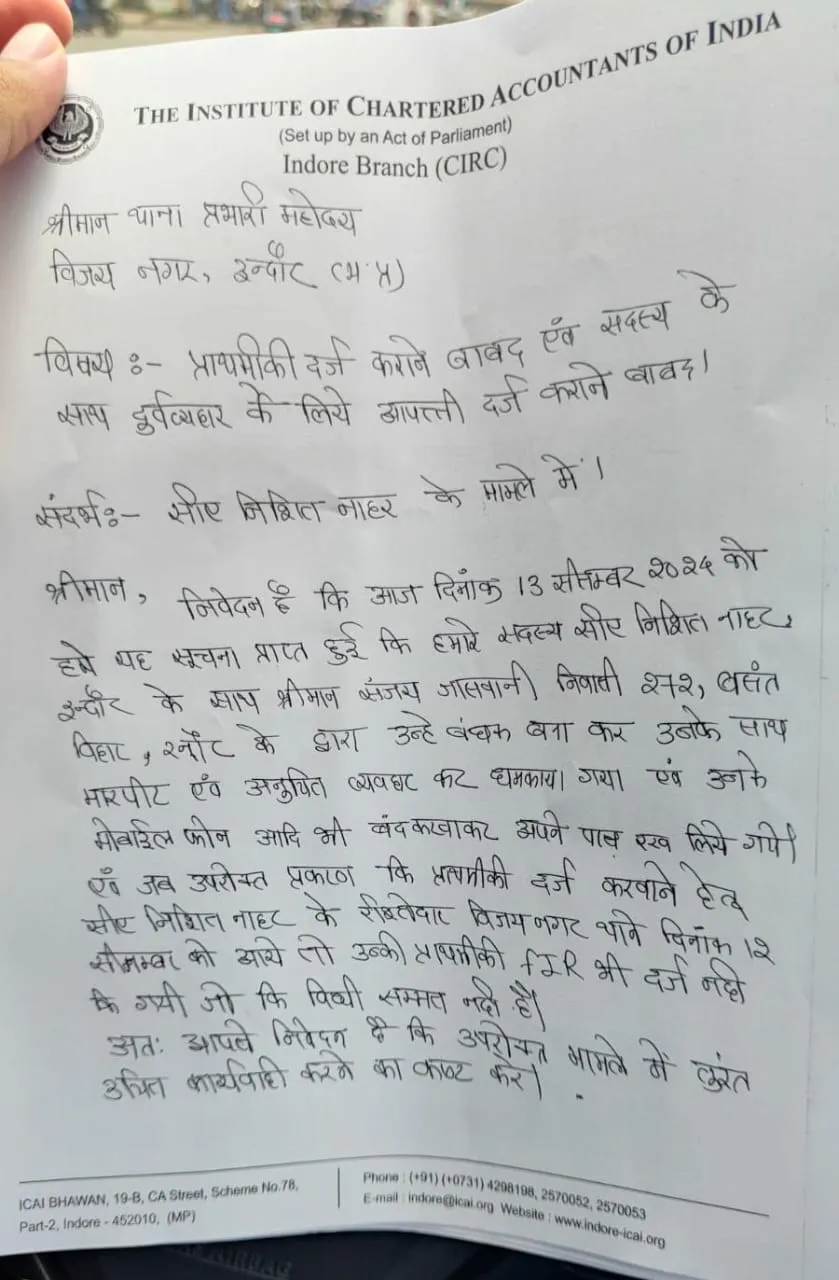 THE INSTITUTE OF CHARTERED ACCOUNTANTS OF INDIA
(Set up by an Act of Parliament)
Indore Branch (CIRC)
श्रीमान थाना प्रभारी महोदय
विजय नगर, इन्दौर (म.प्र)
विषय :- प्राथमीकी दर्ज कराने बावद एंव सदस्य के
साथ दुर्वव्यहार के लिये आपत्ती दर्ज कराने बावद।
संदर्भ :- सीए निशित नाहर के मामले में।
श्रीमान, निवेदन है कि आज दिनांक 13 सीतम्बर २०२४ को
हमे यह सूचना प्राप्त हुई कि हमारे सदस्य सीए निशित नाहर,
इन्दौर के साथ श्रीमान संजय जासवानी निवासी २७२, बसंत
विहार, इन्दौर के द्वारा उन्हे बंधक बना कर उनके साथ
मारपीट एंव अनुचित व्यवहार कर धमकाया गया एंव उनके
मोबाईल फोन आदि भी बंदकरवाकर अपने पास रख लिये गये।
एंव जब उपरोक्त प्रकरण कि प्राथमीकी दर्ज करवाने हेतू
सीए निशित नाहर के रीश्तेदार विजय नगर थाने दिनांक 12
सीतम्बर को आये तो उनकी प्राथमीकी FIR भी दर्ज नही
कि गयी जो कि विधी सम्मत नही है।
अतः आपसे निवेदन है कि उपरोक्त मामले में तुरंत
उचित कार्यवाही करने का कष्ट करे।
ICAI BHAWAN, 19-B, CA Street, Scheme No.78,
Part-2, Indore - 452010, (MP)
Phone : (+91) (+0731) 4298198, 2570052, 2570053
E-mail : indore@icai.org Website : www.indore-icai.org